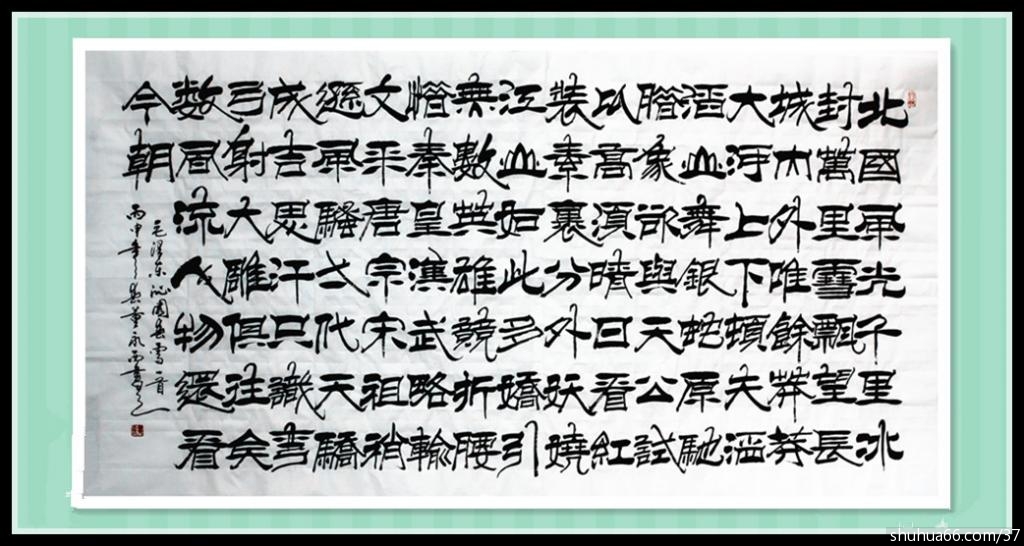 北國風光千里冰
封萬里雪飄望長
城內外唯餘莽莽
大河上下頓失滔
滔山舞銀蛇原馳
臘象欲與天公試
以高須晴日看紅
裝素裹分外妖嬈
江山如此多嬌引
無數英雄競折腰
惜秦皇漢武略輸
文采唐宗宋祖稍
遜風騷弌代天驕
成吉思汗只識彎
弓射大雕俱往矣
数風流人物還看
今朝
毛澤东沁園春雪一首
丙申年春董永西書
shuhua66.com/37